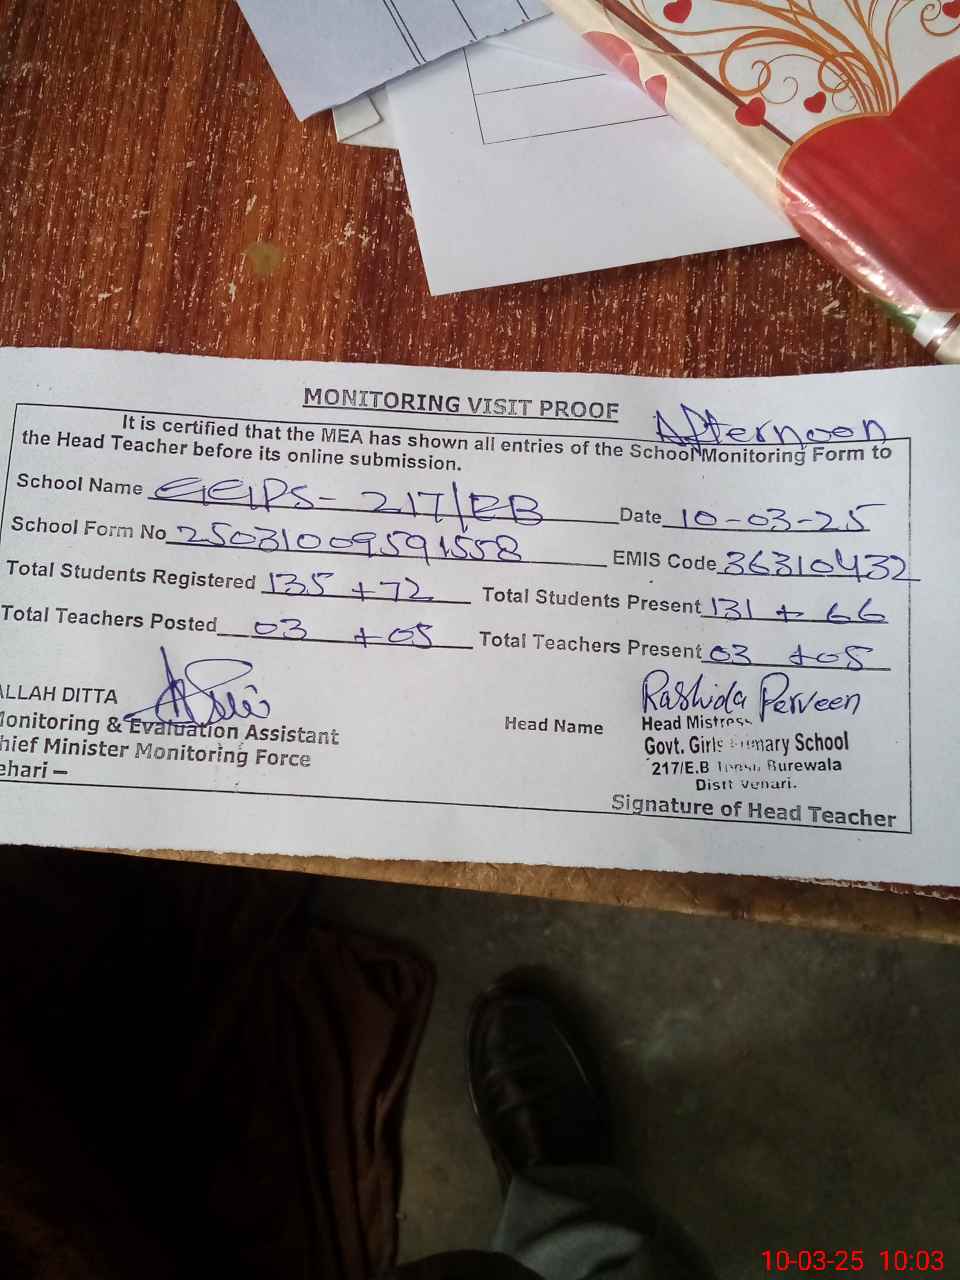 MONITORING VISIT PROOF
Afternoon
It is certified that the MEA has shown all entries of the School Monitoring Form to
the Head Teacher before its online submission.
School Name GGPS- 217/EB Date 10-03-25
School Form No 25031009591558 EMIS Code 36310432
Total Students Registered 135 + 72 Total Students Present 131 + 66
Total Teachers Posted 03 +05 Total Teachers Present 03 +05
ALLAH DITTA
Monitoring & Evaluation Assistant
Chief Minister Monitoring Force
ehari –
Head Name
Rashida Perveen
Head Mistress
Govt. Girls Primary School
217/E.B Burewala
Distt Vehari.
Signature of Head Teacher
10-03-25 10:03